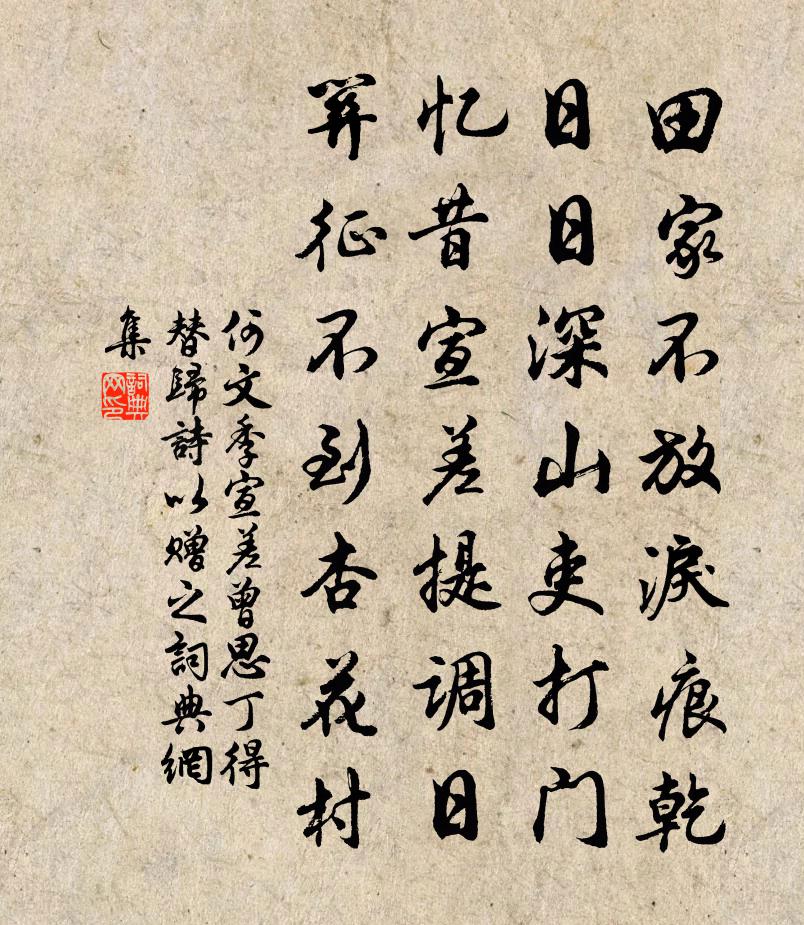 田家不放淚痕乾
日日深山吏打门
忆昔宣差提调日
箕征不到杏花村
何文季宣差曾思丁得
替歸詩以贈之詞典網
集
詞典
网印